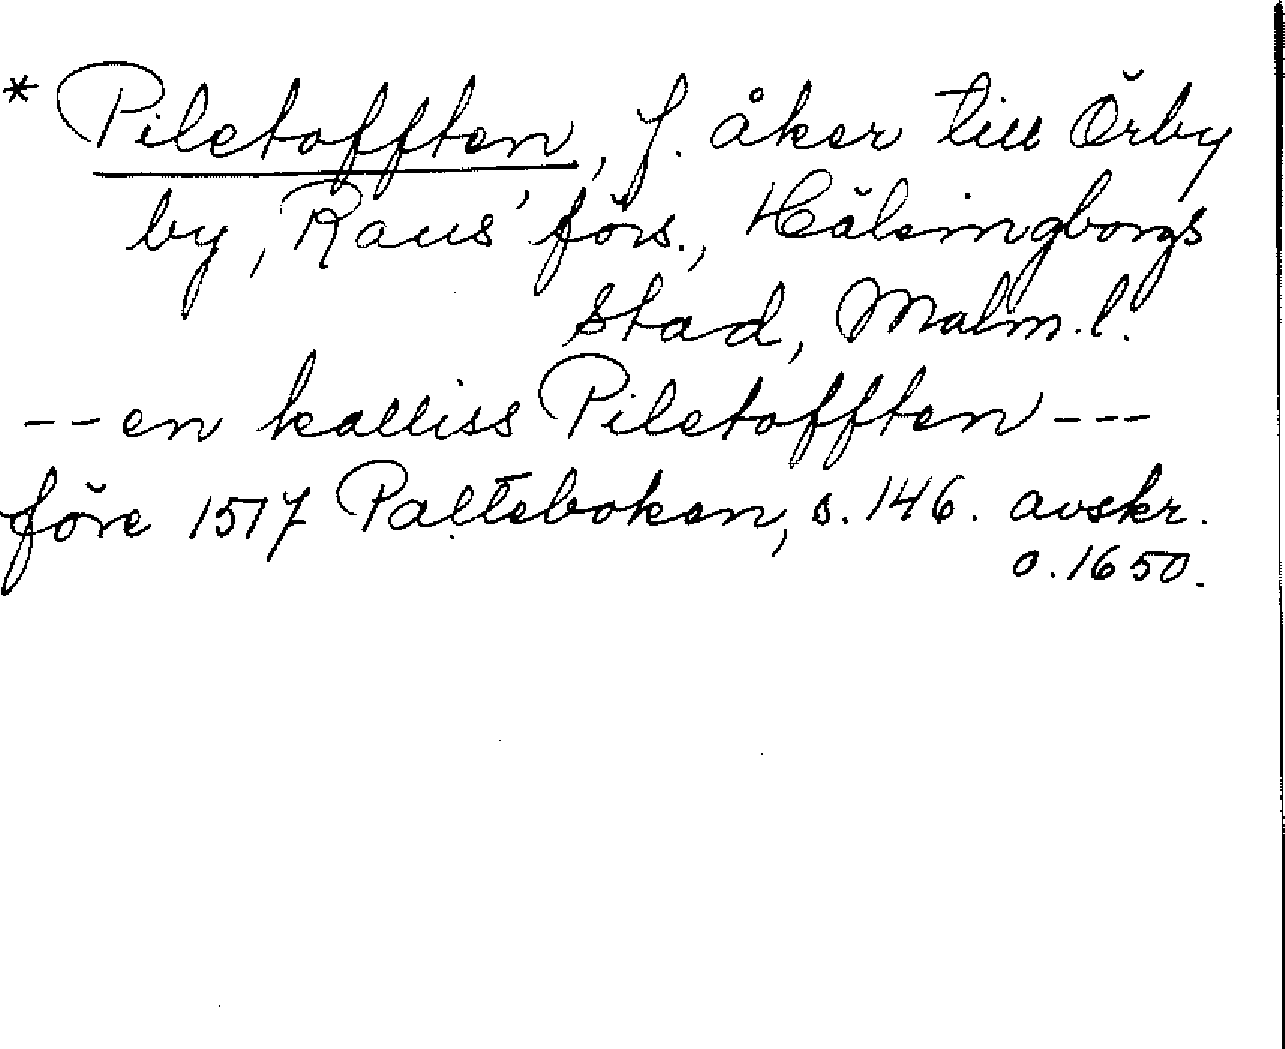 * Piletofften, f. åker till Örby
by, Raus' förs., Hälsingborgs
stad, Malm. l.
-- en kalliss Piletofften ---
före 1517 Palteboken, s. 146. avskr.
o. 1650.